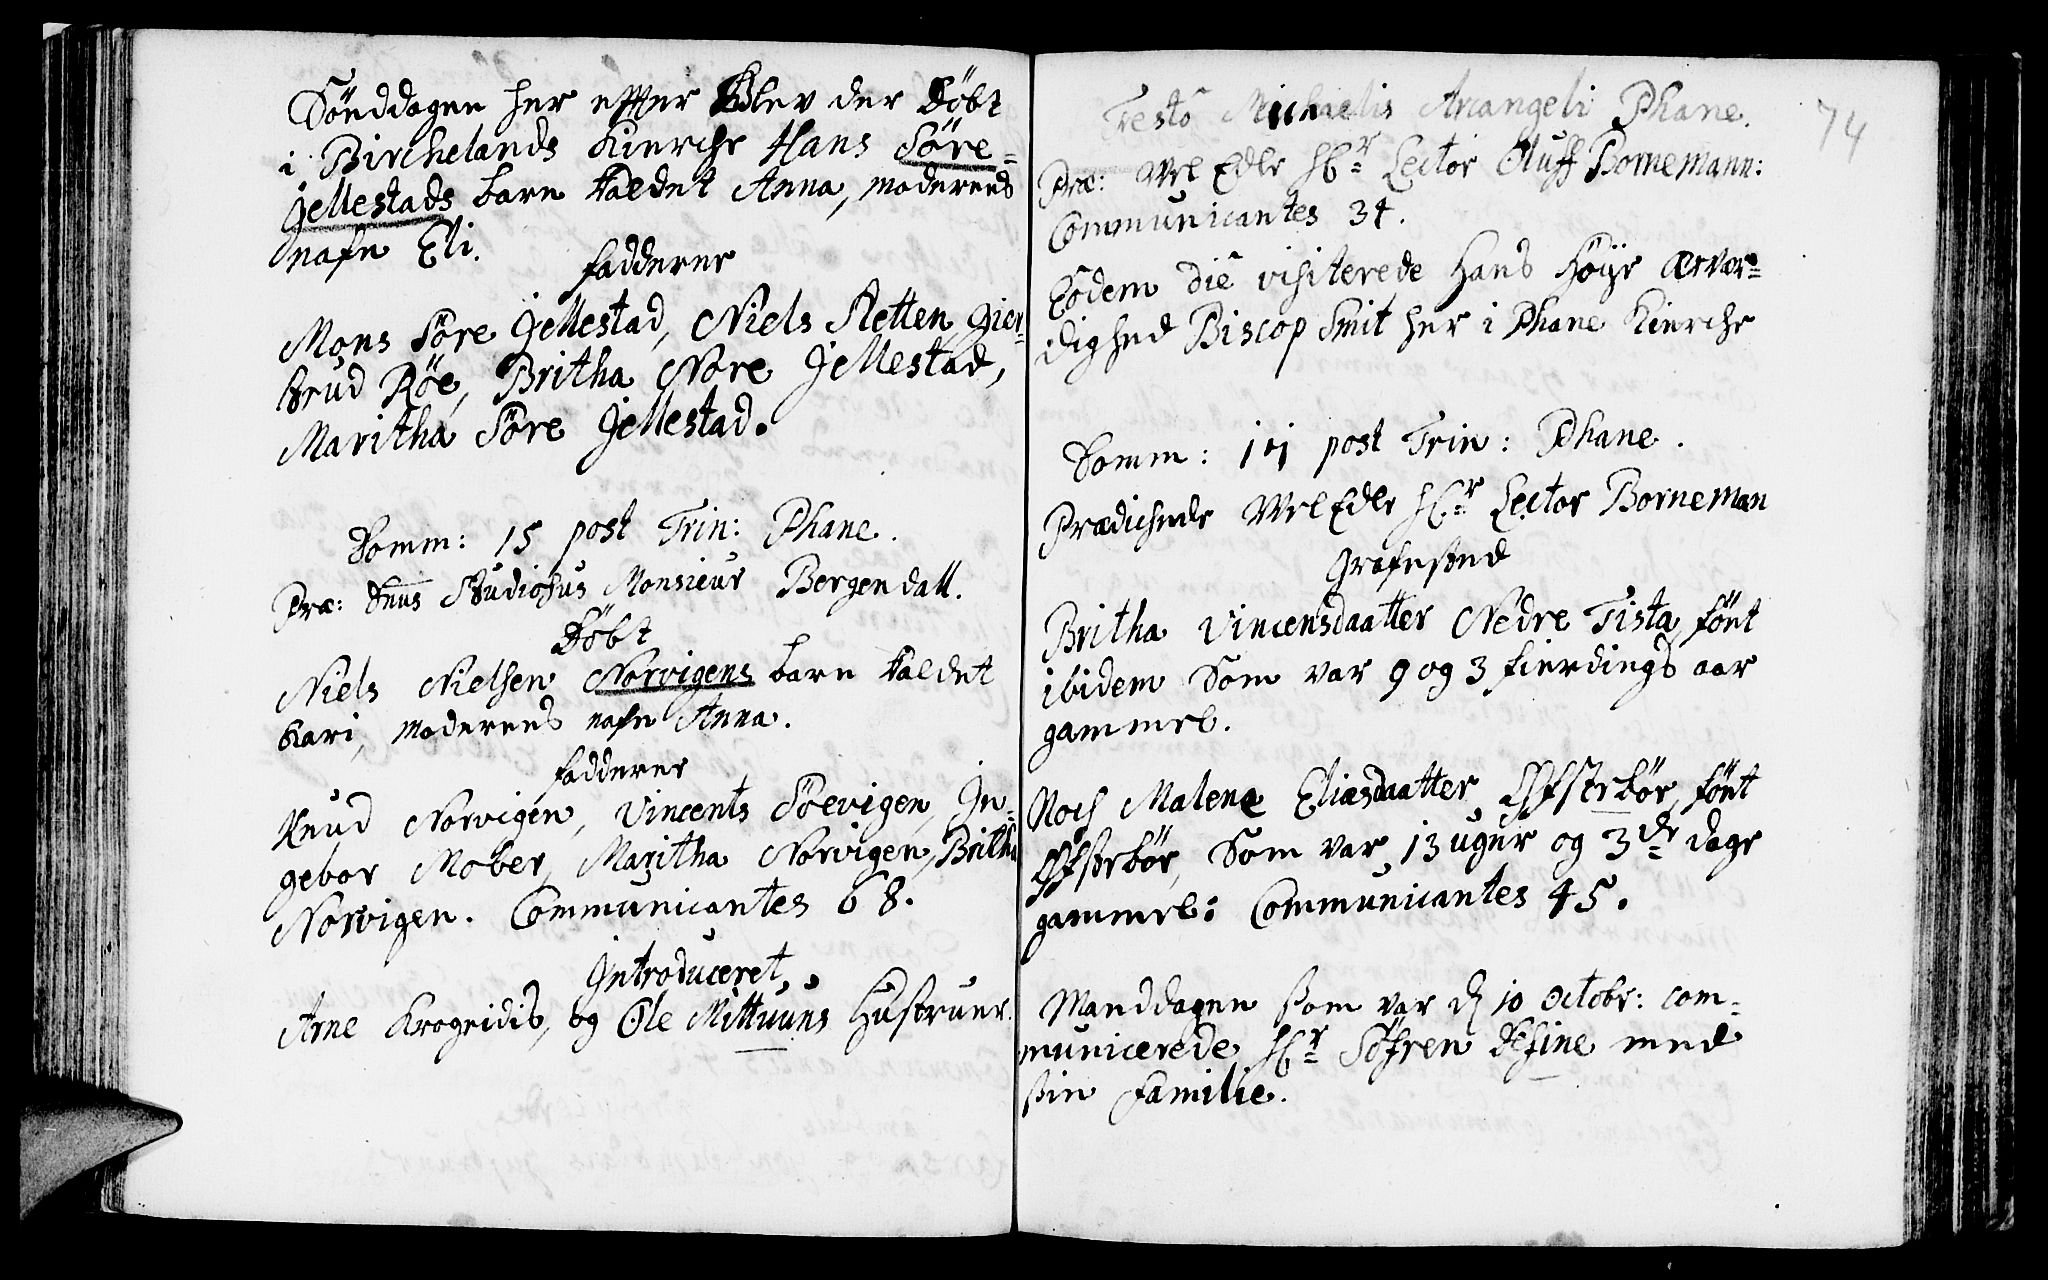 Sönddagen her effter blev der Döbt
i Birchelands Kierche Hans Söre-
Jellestads barn kaldet Anna, moderens
nafn Eli.
fadderer
Mons Söre Jellestad, Niels Sletten, Gier-
trud Röe, Britha Nore Jellestad,
Maritha Söre Jellestad.
Domm: 15 post Trin: Phane.
Præ: Dnus Studiosus Monsieur Bergendall.
Döbt
Niels Nielsen Norvigens barn kaldet
Kari, moderens nafn Anna.
fadderer
Knud Norvigen, Vincents Söevigen, In-
gebor Mober, Maritha Norvigen, Britha
Norvigen. Communicantes 68.
Introduceret,
Arne Krogeidis, og Ole Mittuuns Hustruer.
74
Festo Michaelis Arcangeli Phane.
Præ: Wel Edle Hr Lector Oluff Bornemann:
Communicantes 34.
Eodem Die visiterede Hans Höye Ærvær-
dighed Biscop Smit her i Phane Kierche
Domm: post Trin: Phane.
Prædichede Wel Edle Hr Lector Borneman
Grafested
Britha Vincensdaatter Nedre Tista, föet
ibidem Som var 9 og 3 fierdings aar
gammel.
Noch Malena Eliasdaatter föet
Som var 13 uger og 3de dage
gammel: Communicantes 45.
Manddagen som var d 10 Octobr: com-
municerede Hr Söfren Define med
sin Familie.